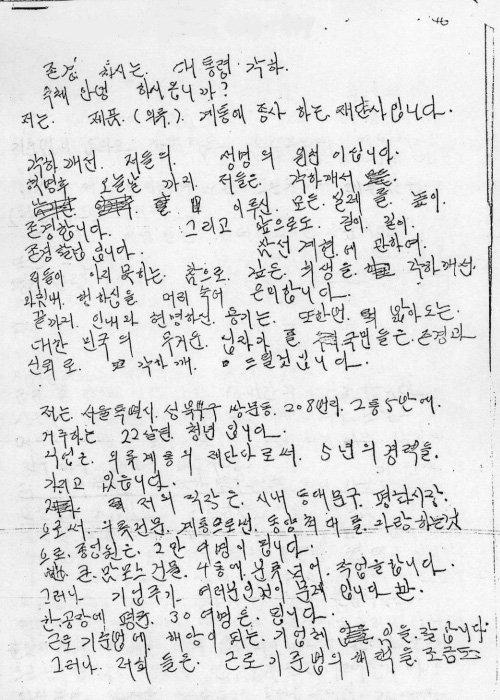 존경 하시는. 대통령 각하.
옥체 안녕 하시옵니까?
저는. 제품.(의류). 계통에 종사 하는. 재단사입니다.
각하께선. 저들의. 생명의 원천 이십니다.
혁명후 오늘날 까지 저들은. 각하께서
이루신. 모든. 일에 를. 높이.
존경합니다. 그리고 앞으로도. 길이. 길이.
존경 할겁니다. 삼선 계헌.에 관하여.
저들이 아지 못하는. 참으로. 깊은. 희생을. 각하께선.
마침내. 행하심을. 머리 숙여 은미합니다.
끝까지. 인내와 현명하신. 용기는. 또한번. 밝아오는.
대한 민국의 무거운. 십자가 를 국민들은. 존경과
신뢰로. 각하께. 드릴것 입니다.
저는. 서울특별시. 성북구 쌍문동. 208번지. 2통 5반에.
거주하는 22살된. 청년 입니다.
직업은. 의류계통의 재단사로써. 5년의 경력을.
가지고 있읍니다.
저의 직장은. 시내 동대문구. 평화시장.
으로써. 의류전문. 계통으로썬. 동양 최대를. 자랑 하는것
으로. 종업원은. 2만 여명이 됩니다.
큰. 맙모스 건물. 4동에 분류 되어. 작업을합니다.
그러나 기업주가 여러분인것이 문제 입니다 만.
한 공장에 평균. 30여명은. 됩니다.
근로 기준법에. 해당이 되는. 기업체 임을. 잘 압니다.
그러나. 저희 들은. 근로 기준법의 혜택을. 조금도